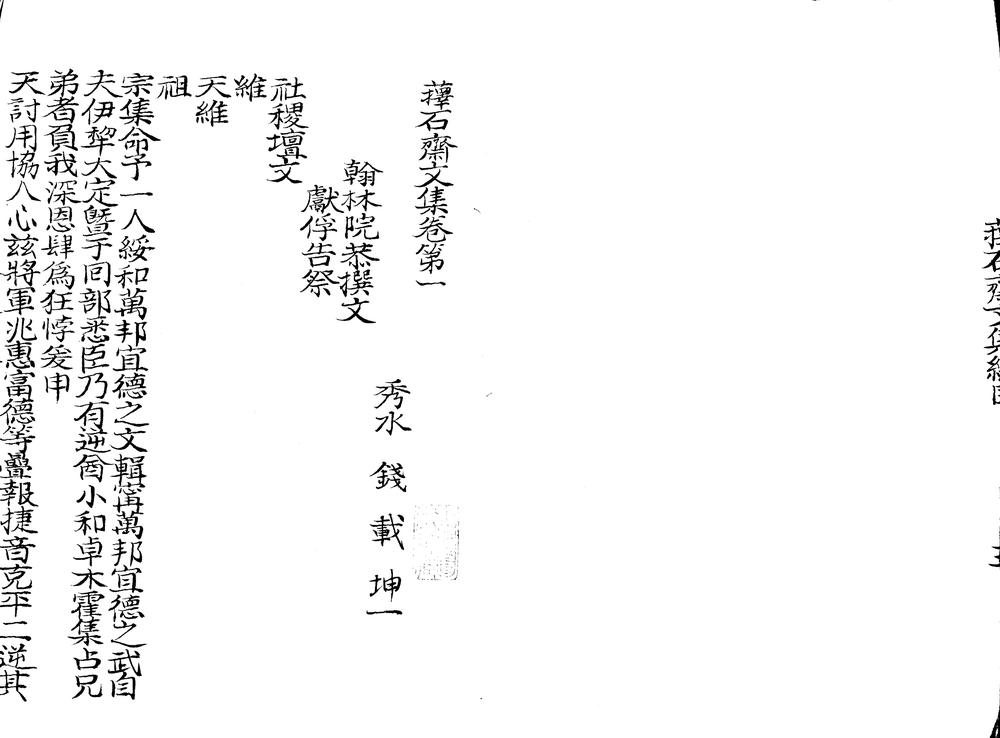 蘀石齋文集卷第一
秀水 錢載坤一
翰林院恭撰文
獻俘告祭
社稷壇文
維
天維
祖
宗集命予一人綏和萬邦宜德之文輯寧萬邦宜德之武自
夫伊犂大定曁于囘部悉臣乃有逆酋小和卓木霍集占兄
弟者負我深恩肆爲狂悖爰申
天討用協人心兹將軍兆惠富德等疊報捷音克平二逆其